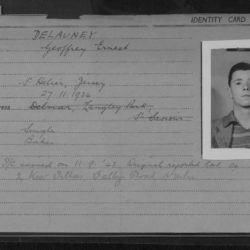 IDENTITY CARD
DELAUNEY
Geoffrey Ernest
St Helier, Jersey
27.11.1924
Delmar, Langley Park,
St Saviour
Single
Baker
issued on 11.9.42. Original reported lost
2 Kew Villas, Valley Road, St